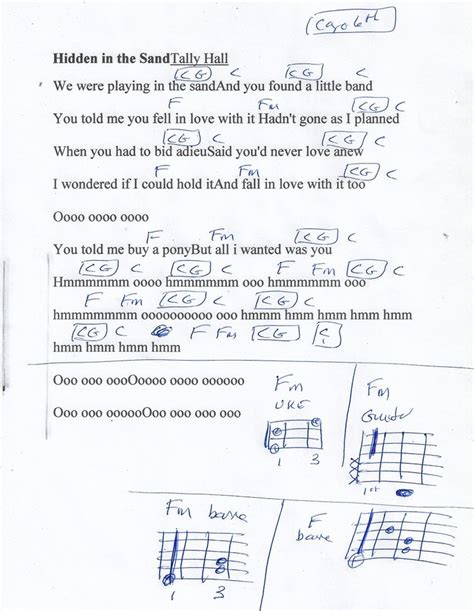 Hidden in the SandTally Hall
CG C CG C
We were playing in the sandAnd you found a little band
F Fm CG C
You told me you fell in love with it Hadn't gone as I planned
CG C CG C
When you had to bid adieuSaid you'd never love anew
F Fm CG C
I wondered if I could hold itAnd fall in love with it too
Oooo oooo oooo
F Fm CG C
You told me buy a ponyBut all i wanted was you
CG C CG C F Fm CG C
Hmmmmmm oooo hmmmmmm ooo hmmmmmm ooo
F Fm CG C CG C
hmmmmmmm oooooooooo ooo hmmm hmm hmm hmm hmm
CG C F Fm CG C
hmm hmm hmm hmm
Ooo ooo oooOoooo oooo oooooo
Ooo ooo oooooOoo ooo ooo ooo
Fm
UKE
1 3
Fm
1st
Fm barre
1 3
F
barre